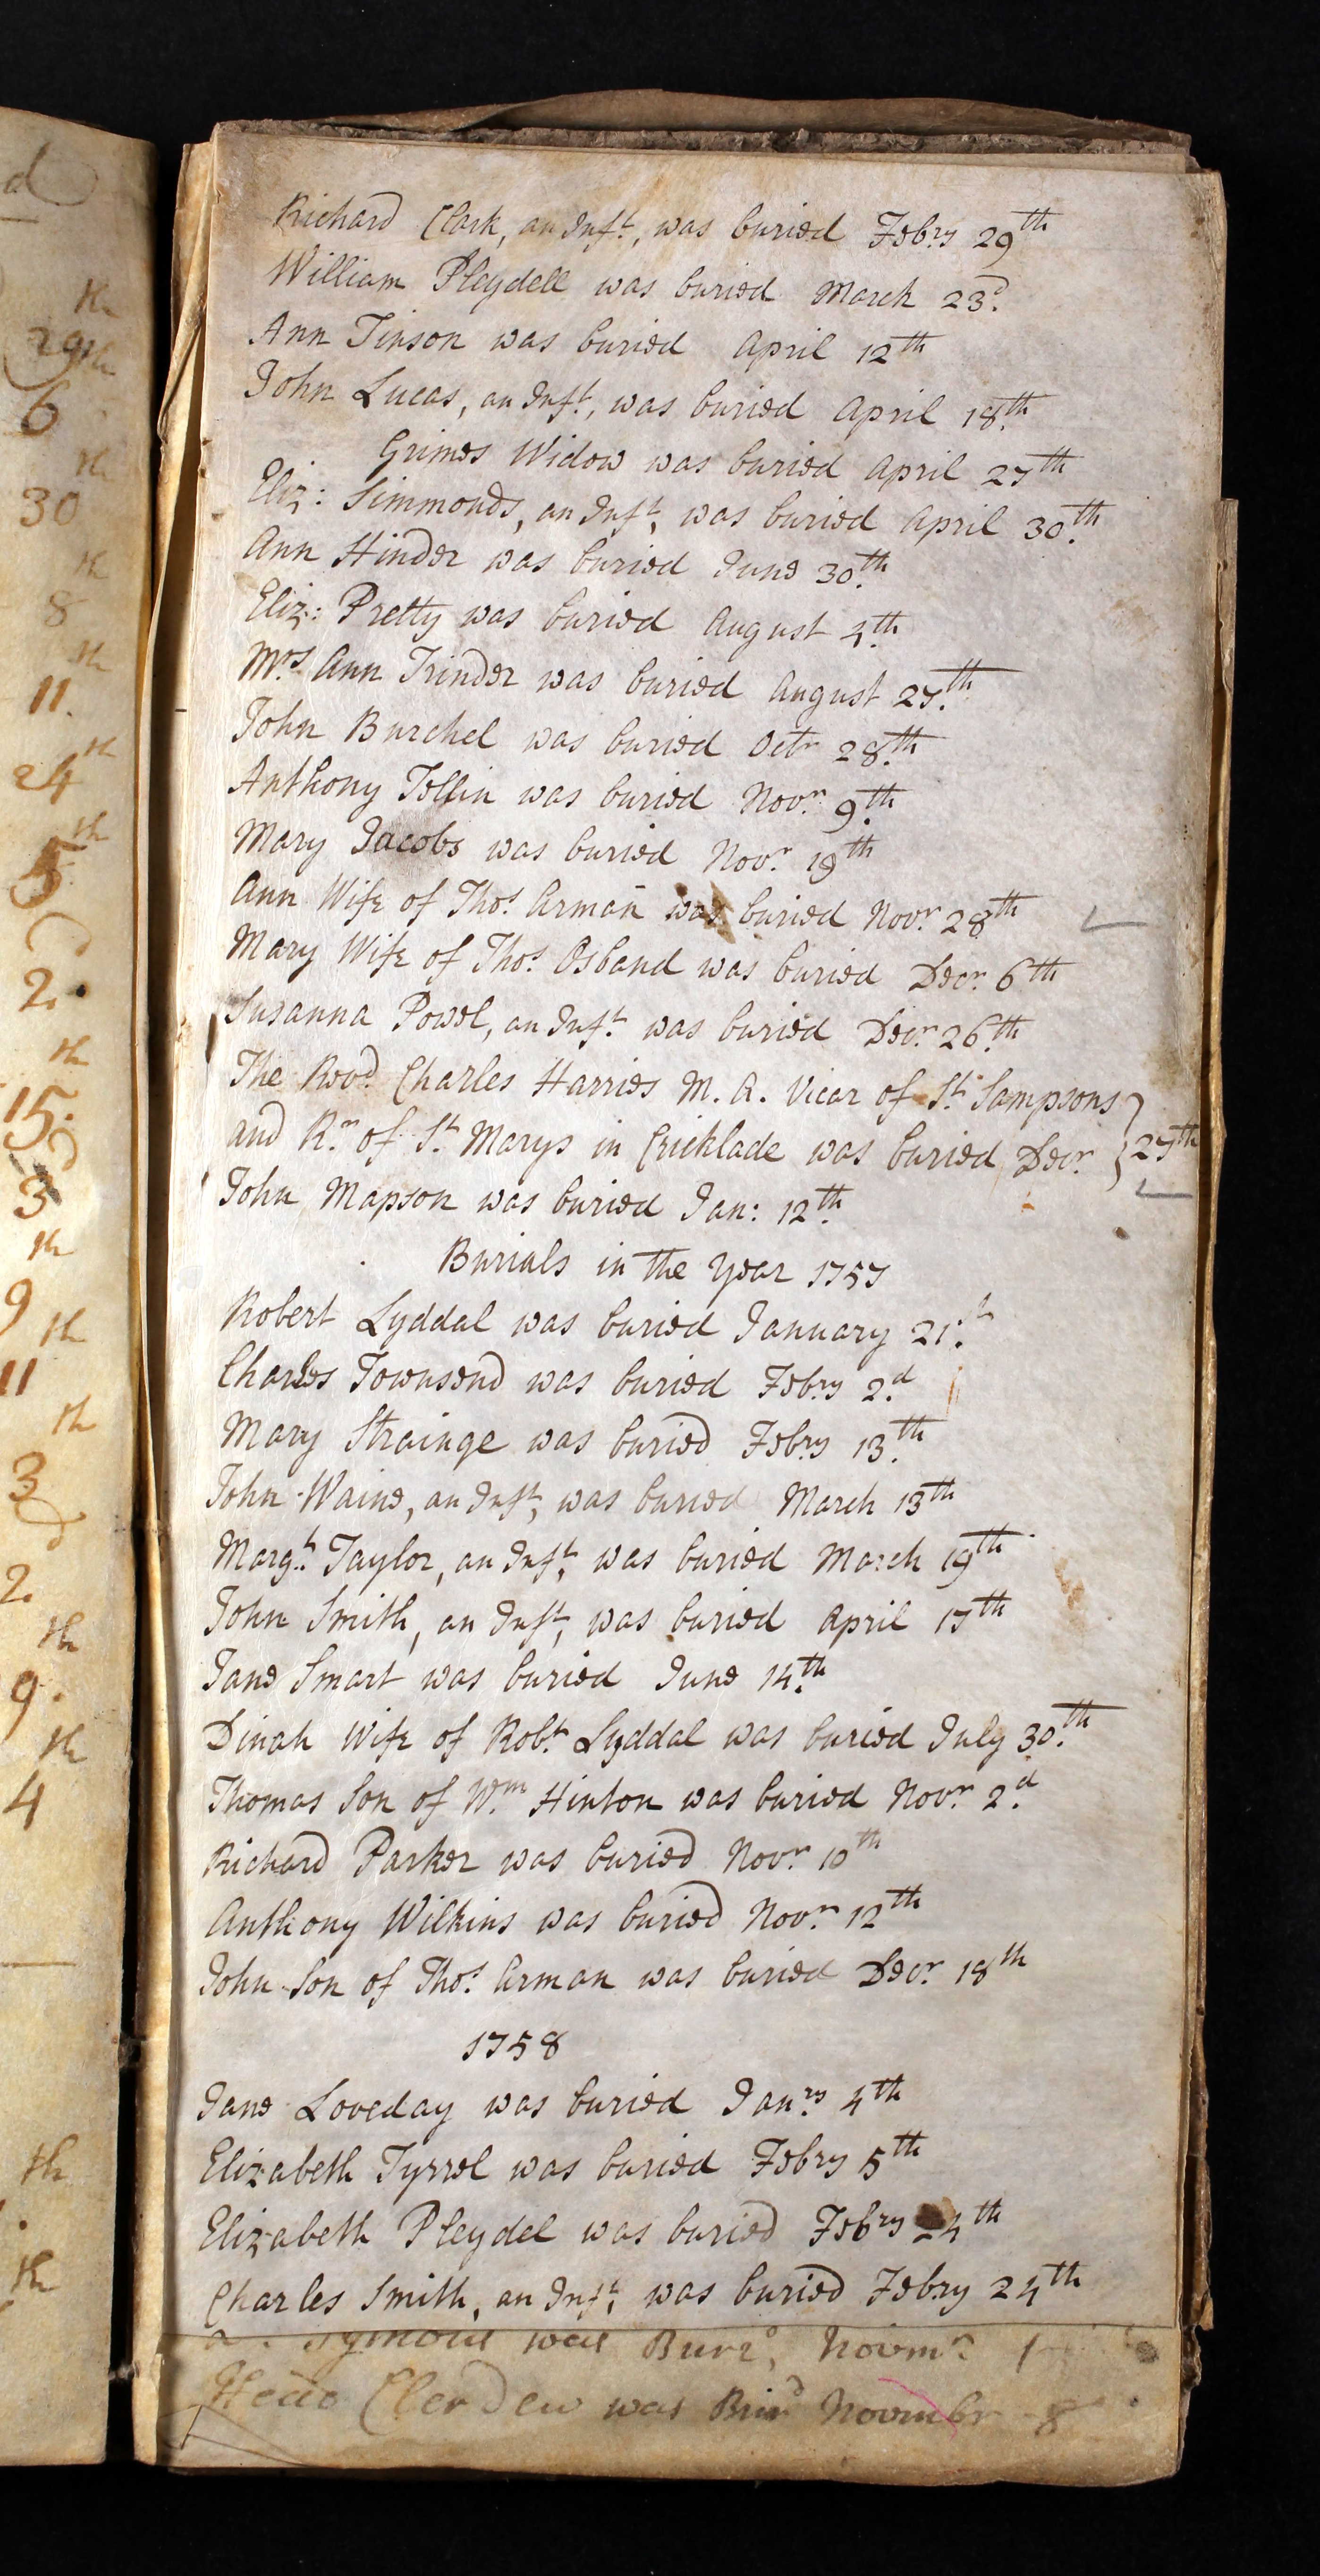 Richard Clark, an Inft., was buried Febry 29th
William Pleydell was buried March 23d.
Ann Tinson was buried April 12th
John Lucas, an Inft., was buried April 18th.
Grimes Widow was buried April 27th
Eliz: Simmonds, an Inft., was buried April 30th.
Ann Hinder was buried June 30th.
Eliz: Pretty was buried August 4th.
Mrs. Ann Trinder was buried August 27th.
John Burchel was buried Octr 28th.
Anthony Tollin was buried Novr. 9th.
Mary Jacobs was buried Novr. 19th
Ann Wife of Thos. Arman was buried Novr. 28th
Mary Wife of Thos. Osband was buried Decr. 6th
Susanna Powel, an Inft. was buried Decr. 26th.
The Revd. Charles Harries M. A. Vicar of St. Sampsons
and Rr. of St Marys in Cricklade was buried Decr. 27th
John Mapson was buried Jan: 12th.
Burials in the Year 1757
Robert Lyddal was buried January 21.
Charles Townsend was buried Febry 2.d
Mary Strainge was buried Febry 13.th
John Waine, an Inft, was buried March 13th
Margt. Taylor, an Inft, was buried March 19th
John Smith, an Inft, was buried April 17th
Jane Smart was buried June 14.th
Dinah Wife of Robt. Lyddal was buried July 30.th
Thomas Son of Wm. Hinton was buried Novr. 2.d
Richard Parker was buried Novr. 10th
Anthony Wilkins was buried Novr. 12th
John Son of Thos. Arman was buried Decr. 18th
1758
Jane Loveday was buried Janry 4th
Elizabeth Tyrrel was buried Febry 5th
Elizabeth Pleydel was buried Febry 24th
Charles Smith, an Inft, was buried Febry 24th
was Burd, Novmr.
was Burd Novmbr 8
d
th
29th
6
th
30
th
8
th
11.
th
24
th
5
2.
th
15.
3
th
9
th
11
th
3
2.
th
9.
th
4
th
th